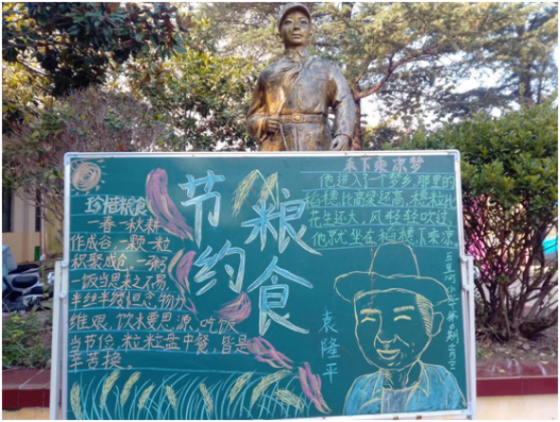 珍惜粮食
一春一秋耕
作成谷,一颗一粒
积聚成仓,一粥
一饭当思来之不易,
半丝半缕恒念物力
维艰,饮水要思源,吃饭
当节俭,粒粒盘中餐,皆是
辛苦换。
节约
粮食
禾下乘凉梦
他进入了一个梦乡,那里的
稻穗比高粱还高,穗粒比
花生还大,风轻轻吹过,
他就坐在稻穗下乘凉。
袁隆平